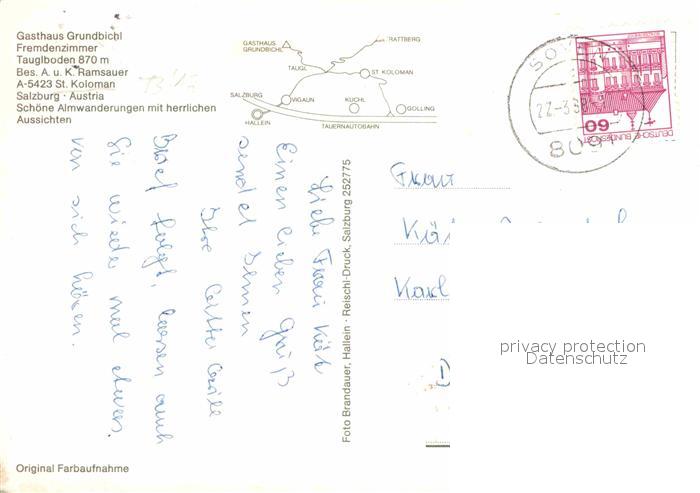 Gasthaus Grundbichl
Fremdenzimmer
Tauglboden 870 m
Bes. A. u. K. Ramsauer
A-5423 St. Koloman
Salzburg · Austria
Schöne Almwanderungen mit herrlichen
Aussichten
GASTHAUS
GRUNDBICHL
TAUGL
TRATTBERG
ST. KOLOMAN
SALZBURG
VIGAUN
KUCHL
GOLLING
HALLEIN
TAUERNAUTOBAHN
Liebe Frau Käte
Einen lieben Gruß
sendet Ihnen
Ihre
Brief folgt, lassen auch
Sie wieder mal etwas
von sich hören.
Foto Brandauer, Hallein · Reischl-Druck, Salzburg 252775
DEUTSCHE BUNDESPOST
60
8091
Frau
Kä
Karl
privacy protection
Datenschutz
Original Farbaufnahme